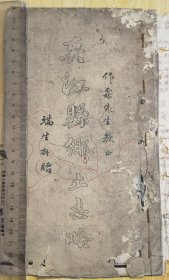 作霖先生教正
夾江縣鄉土志略
瑞生拜贈